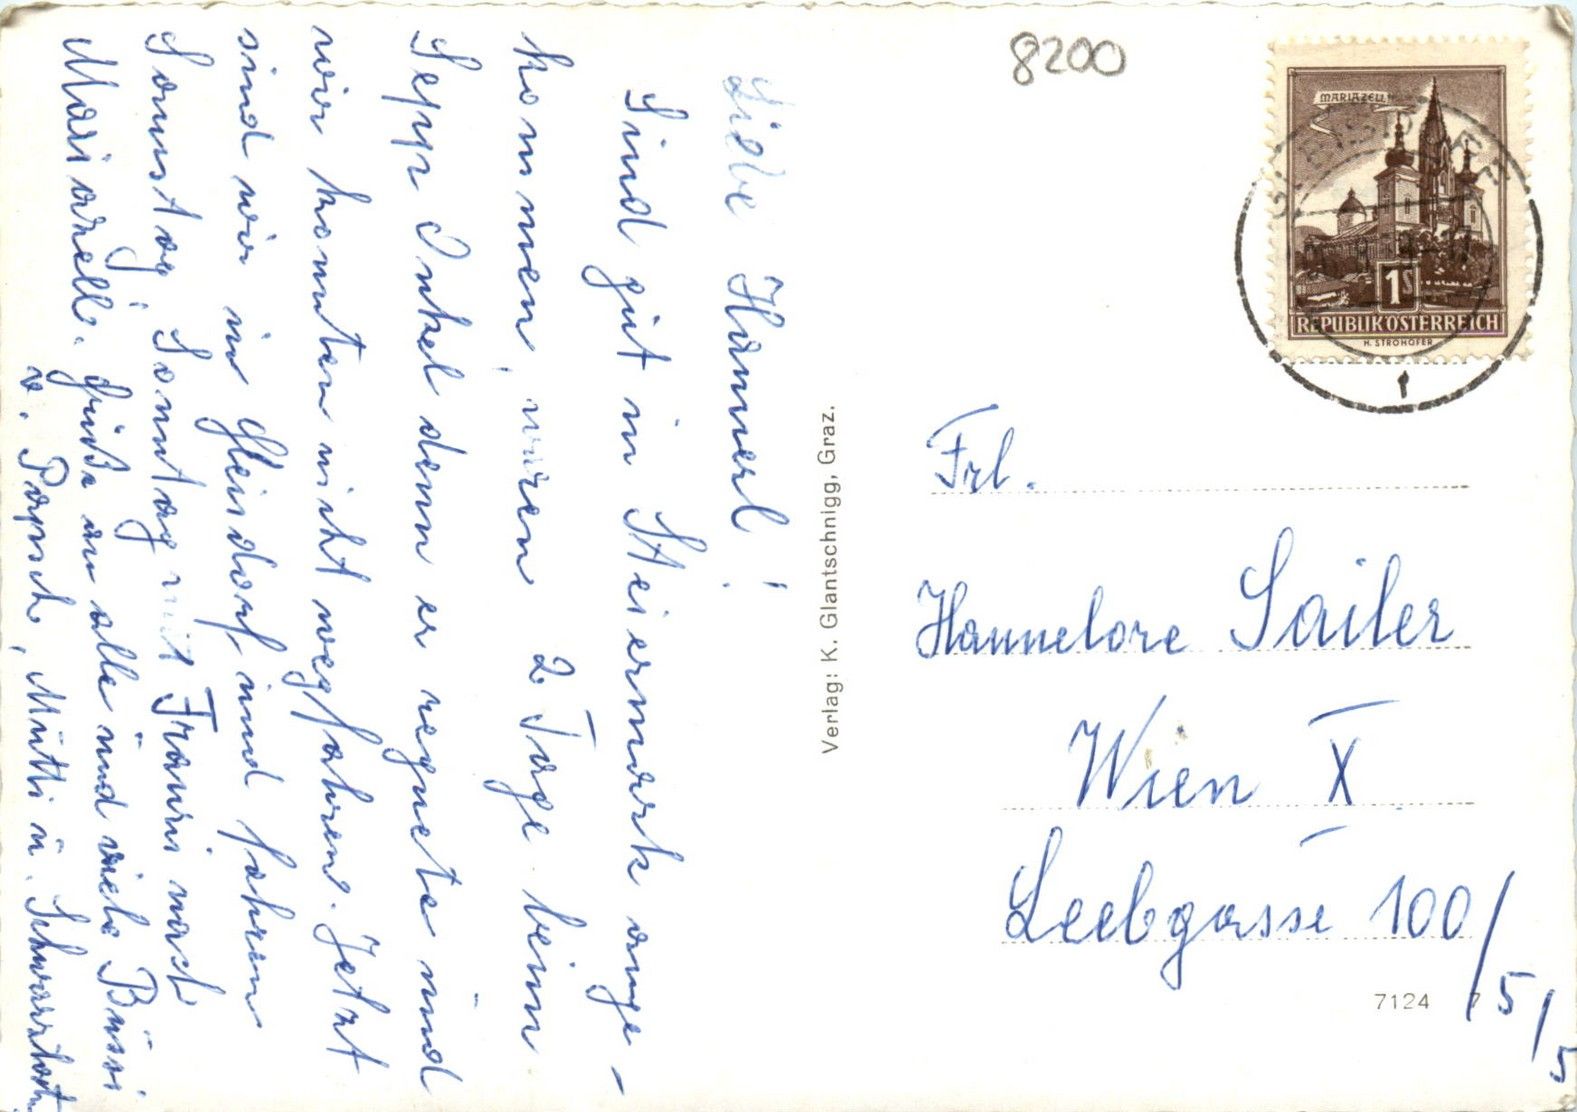 8200
MARIAZELL
1S
REPUBLIK ÖSTERREICH
H. STROHOFER
GLEISDORF
1
Liebe Hannerl!
Sind gut in Steiermark ange-
kommen, waren 2 Tage beim
Sepp Onkel denn er regnete und
wir konnten nicht wegfahren. Jetzt
sind wir in Gleisdorf und fahren
Sonntag mit Franzi nach
Mariazell. Grüße an alle und viele Bussi
v. Papsch, Mutti u.
Verlag: K. Glantschnigg, Graz.
Frl.
Hannelore Sailer
Wien X
Leebgasse 100/5/5
7124 7